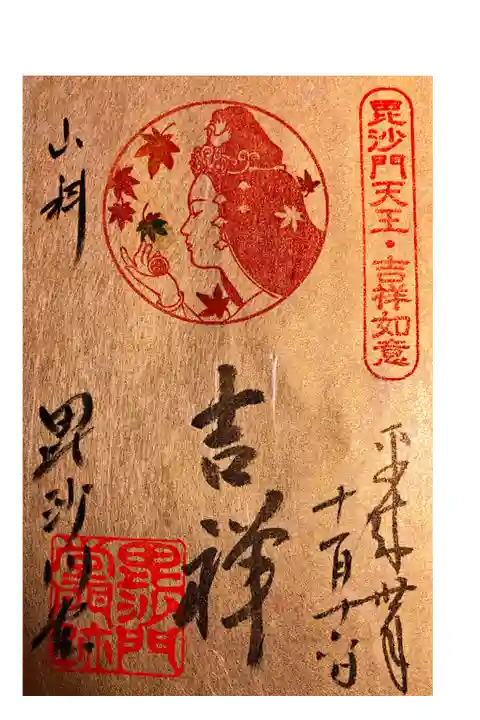 毘沙門天王・吉祥如意
平成卅年
十一月十一日
吉祥
山科
毘沙門堂
毘沙門堂跡